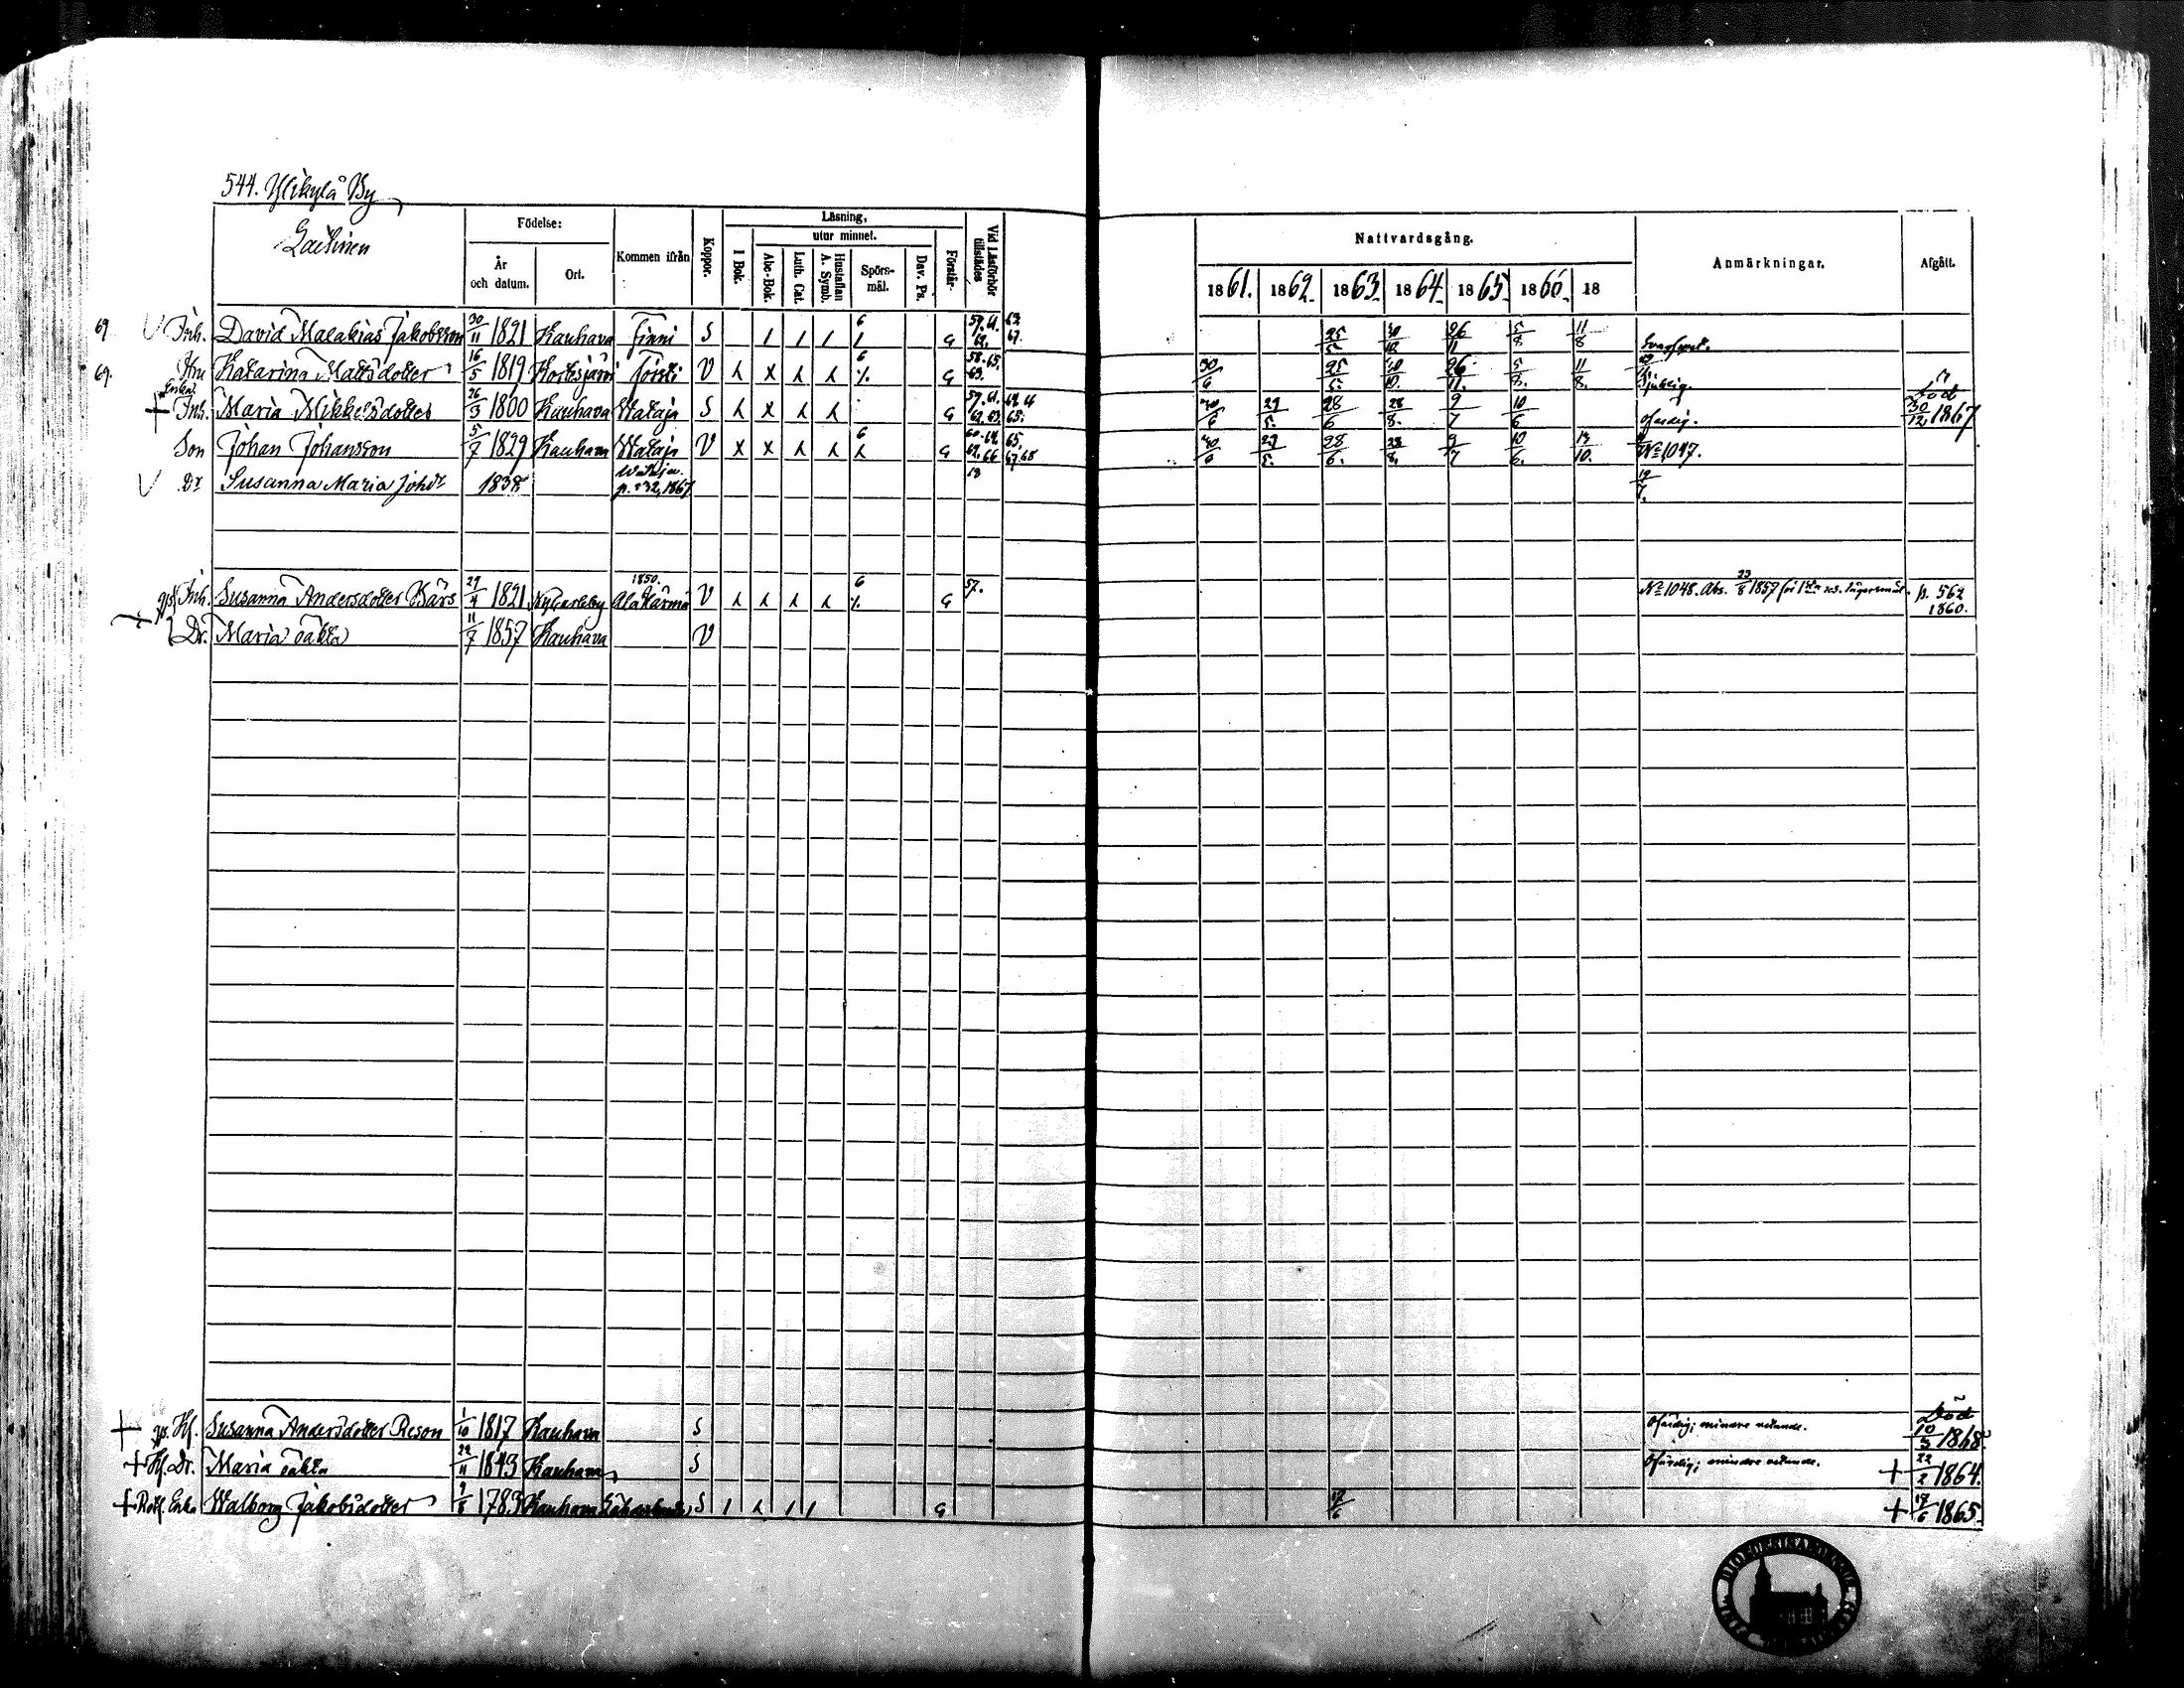 544. Ylikylä By
Lahtinen
Födelse:
År och datum.
Ort.
Kommen ifrån
Koppor.
Läsning,
utur minnet.
I Bok.
Abc-Bok.
Luth. Cat.
Hustaflan A. Symb.
Spörs-mål.
Dav. Ps.
Förstår-
Vid Läsförhör tillstädes
Nattvardsgång.
1861. 1862. 1863. 1864. 1865. 1866. 18
Anmärkningar.
Afgått.
69 Inh. David Malakias Jakobsson 30/11 1821 Kauhava Finni S 6 G 59. 61. 25/5 26/11 5/8 11/8
69. Hu Katarina Mattsdotter 16/5 1819 Kortesjärvi V 6 G 58. 65. 63. 30/6 25/5. 26/11. 5/8. 11/8. Sjuklig.
+ Enka Inh. Maria Mikkelsdotter 26/3 1800 Kauhava Wataja S G 59. 61. 28/6 28/8. 9/7 10/6 ofärdig. Död 30/12 1867
Son Johan Johansson 5/7 1829 Kauhava Wataja V 6 G 65 28/6. 28/8. 9/7 10/6. 13/10. No 1047.
Dr Susanna Maria Johdr 1838 p. 232, 1867
Inh. Susanna Andersdotter Bärs 29/4 1821 Nykarleby 1850. Alakärmä V 6 G 57. No 1048. Abs. 23/8 1857 för 1sta res. lägersmål. p. 562 1860.
Dr. Maria oäkta 11/7 1857 Kauhava V
+ Hf. Susanna Andersdotter Reson 1/10 1817 Kauhava S Ofärdig; mindre vetande. Död 10/3 1868
+ Hf. Dr. Maria oäkta 22/11 1843 Kauhava S Ofärdig; mindre vetande. + 22/2 1864.
+ Rotf. Enka Walborg Jakobsdotter 1783 Kauhava S G 17/6 + 17/6 1865.